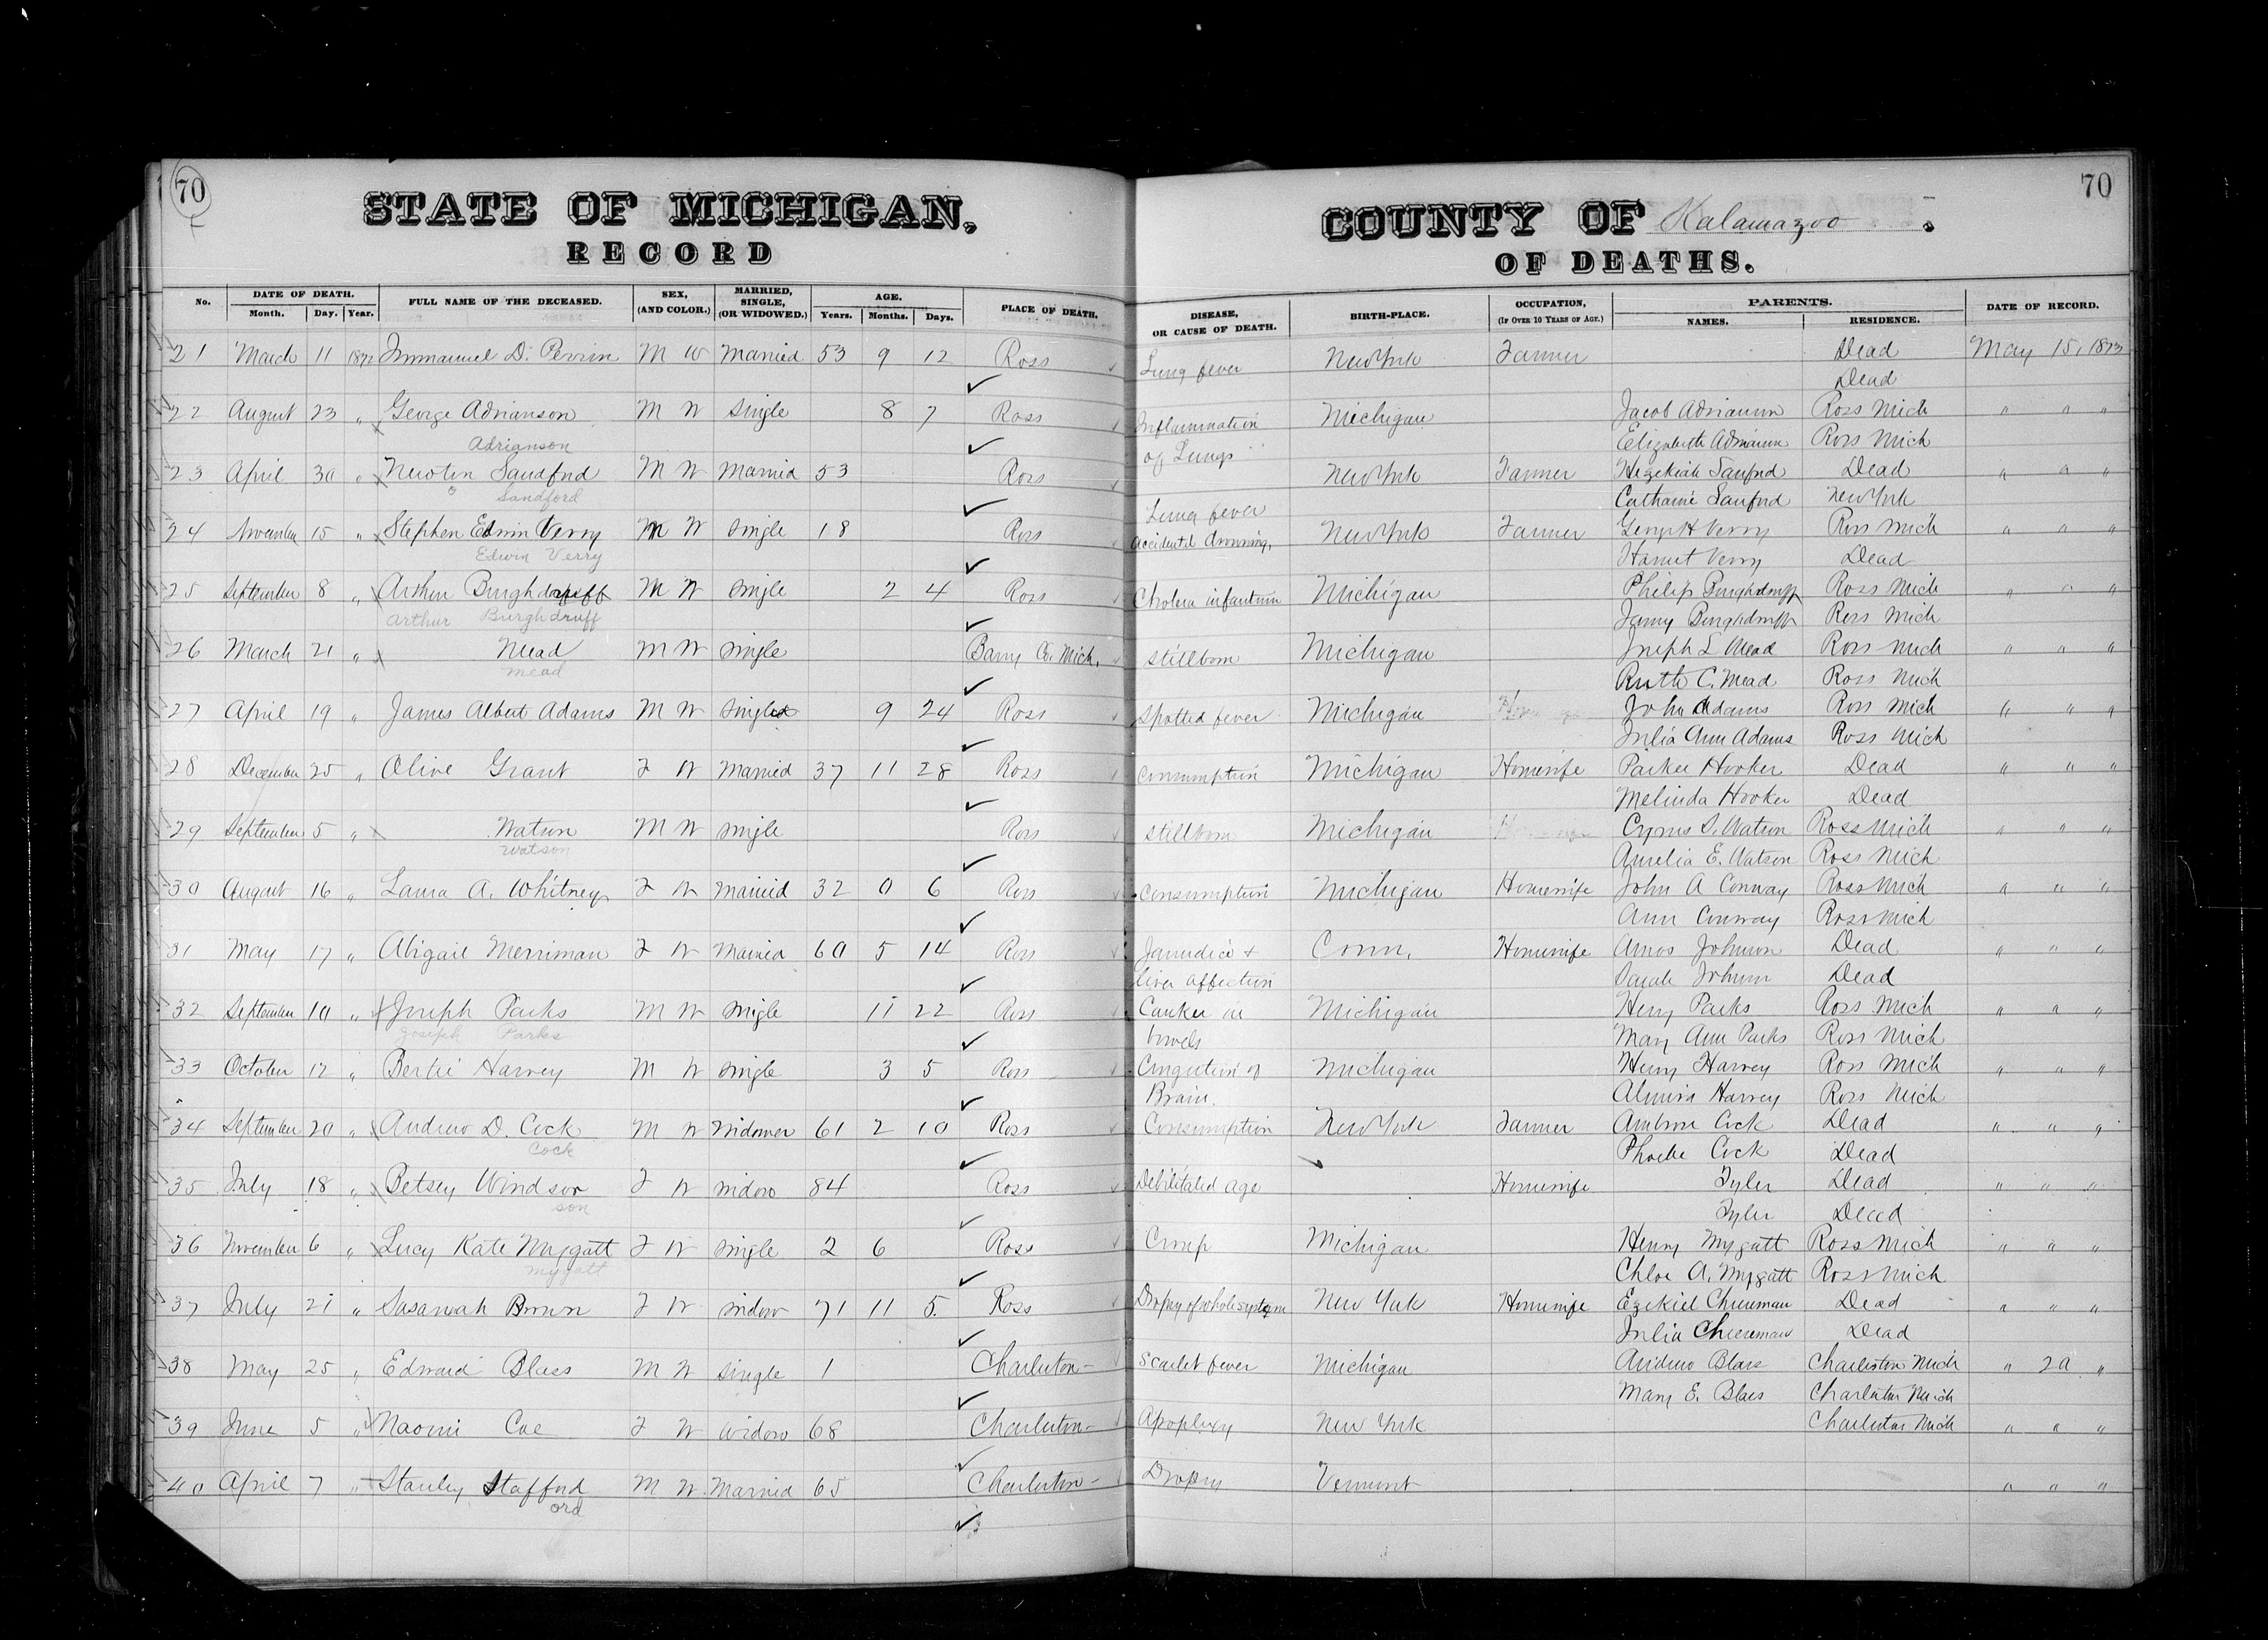 70
STATE OF MICHIGAN.
RECORD
COUNTY OF Kalamazoo.
70
OF DEATHS.
No. DATE OF DEATH. Month. Day. Year. FULL NAME OF THE DECEASED. SEX, (AND COLOR.) MARRIED, SINGLE, (OR WIDOWED.) AGE. Years. Months. Days. PLACE OF DEATH. DISEASE, OR CAUSE OF DEATH. BIRTH-PLACE. OCCUPATION, (IF OVER 10 YEARS OF AGE.) PARENTS. NAMES. RESIDENCE. DATE OF RECORD.
21 March 11 1872 Immanuel D. Perrin M W Married 53 9 12 Ross Lung fever New York Farmer Dead May 15, 1873
Dead
22 August 23 " George Adrianson M W Single 8 7 Ross Inflammation Michigan Jacob Adrianson Ross Mich " " "
Adrianson of Lungs Elizabeth Adrianson Ross Mich
23 April 30 " Newton Sandford M W Married 53 Ross New York Farmer Hezekiah Sanford Dead " " "
Sandford Lung fever Catharine Sanford New York
24 November 15 " Stephen Edwin Verry M W Single 18 Ross Accidental drowning, New York Farmer George H Verry Ross Mich " " "
Edwin Verry Harriet Verry Dead
25 September 8 " Arthur Burghdruff M W Single 2 4 Ross Cholera infantum Michigan Philip Burghdruff Ross Mich " " "
Arthur Burghdruff Burghdruff Ross Mich
26 March 21 " Mead M W Single Barry Co. Mich. Stillborn Michigan Joseph L Mead Ross Mich " " "
mead Ruth C. Mead Ross Mich
27 April 19 " James Albert Adams M W Single 9 24 Ross Spotted fever Michigan John Adams Ross Mich " " "
Julia Ann Adams Ross Mich
28 December 25 " Olive Grant F W Married 37 11 28 Ross Consumption Michigan Housewife Parker Hooker Dead " " "
Melinda Hooker Dead
29 September 5 " Watson M W Single Ross Stillborn Michigan Cyrus S. Watson Ross Mich " " "
Watson Aurelia E. Watson Ross Mich
30 August 16 " Laura A. Whitney F W Married 32 0 6 Ross Consumption Michigan Housewife John A Conway Ross Mich " " "
Ann Conway Ross Mich
31 May 17 " Abigail Merriman F W Married 60 5 14 Ross Jaundice & Conn. Housewife Amos Johnson Dead " " "
liver affection Sarah Johnson Dead
32 September 10 " Joseph Parks M W Single 11 22 Ross Canker in Michigan Henry Parks Ross Mich " " "
Joseph Parks bowels Mary Ann Parks Ross Mich
33 October 12 " Bertie Harvey M W Single 3 5 Ross Congestion of Michigan Henry Harvey Ross Mich " " "
Brain. Almira Harvey Ross Mich
34 September 20 " Andrew D. Cock M W Widower 61 2 10 Ross Consumption New York Farmer Ambrose Cock Dead " " "
Cock Phoebe Cock Dead
35 July 18 " Betsey Windsor F W Widow 84 Ross Debilitated age Housewife Tyler Dead " " "
son Tyler Dead
36 November 6 " Lucy Kate Mygatt F W Single 2 6 Ross Croup Michigan Henry Mygatt Ross Mich " " "
mygatt Chloe A. Mygatt Ross Mich
37 July 21 " Susannah Brown F W Widow 71 11 5 Ross Dropsy of whole system New York Housewife Ezekiel Cheeseman Dead " " "
Julia Cheeseman Dead
38 May 25 " Edward Blaes M W Single 1 Charleston Scarlet fever Michigan Andrew Blaes Charleston Mich " 20 "
Mary E. Blaes Charleston Mich
39 June 5 " Naomi Coe F W Widow 68 Charleston Apoplexy New York Charleston Mich " " "
40 April 7 " Stanley Stafford M W Married 65 Charleston Dropsy Vermont " " "
ord